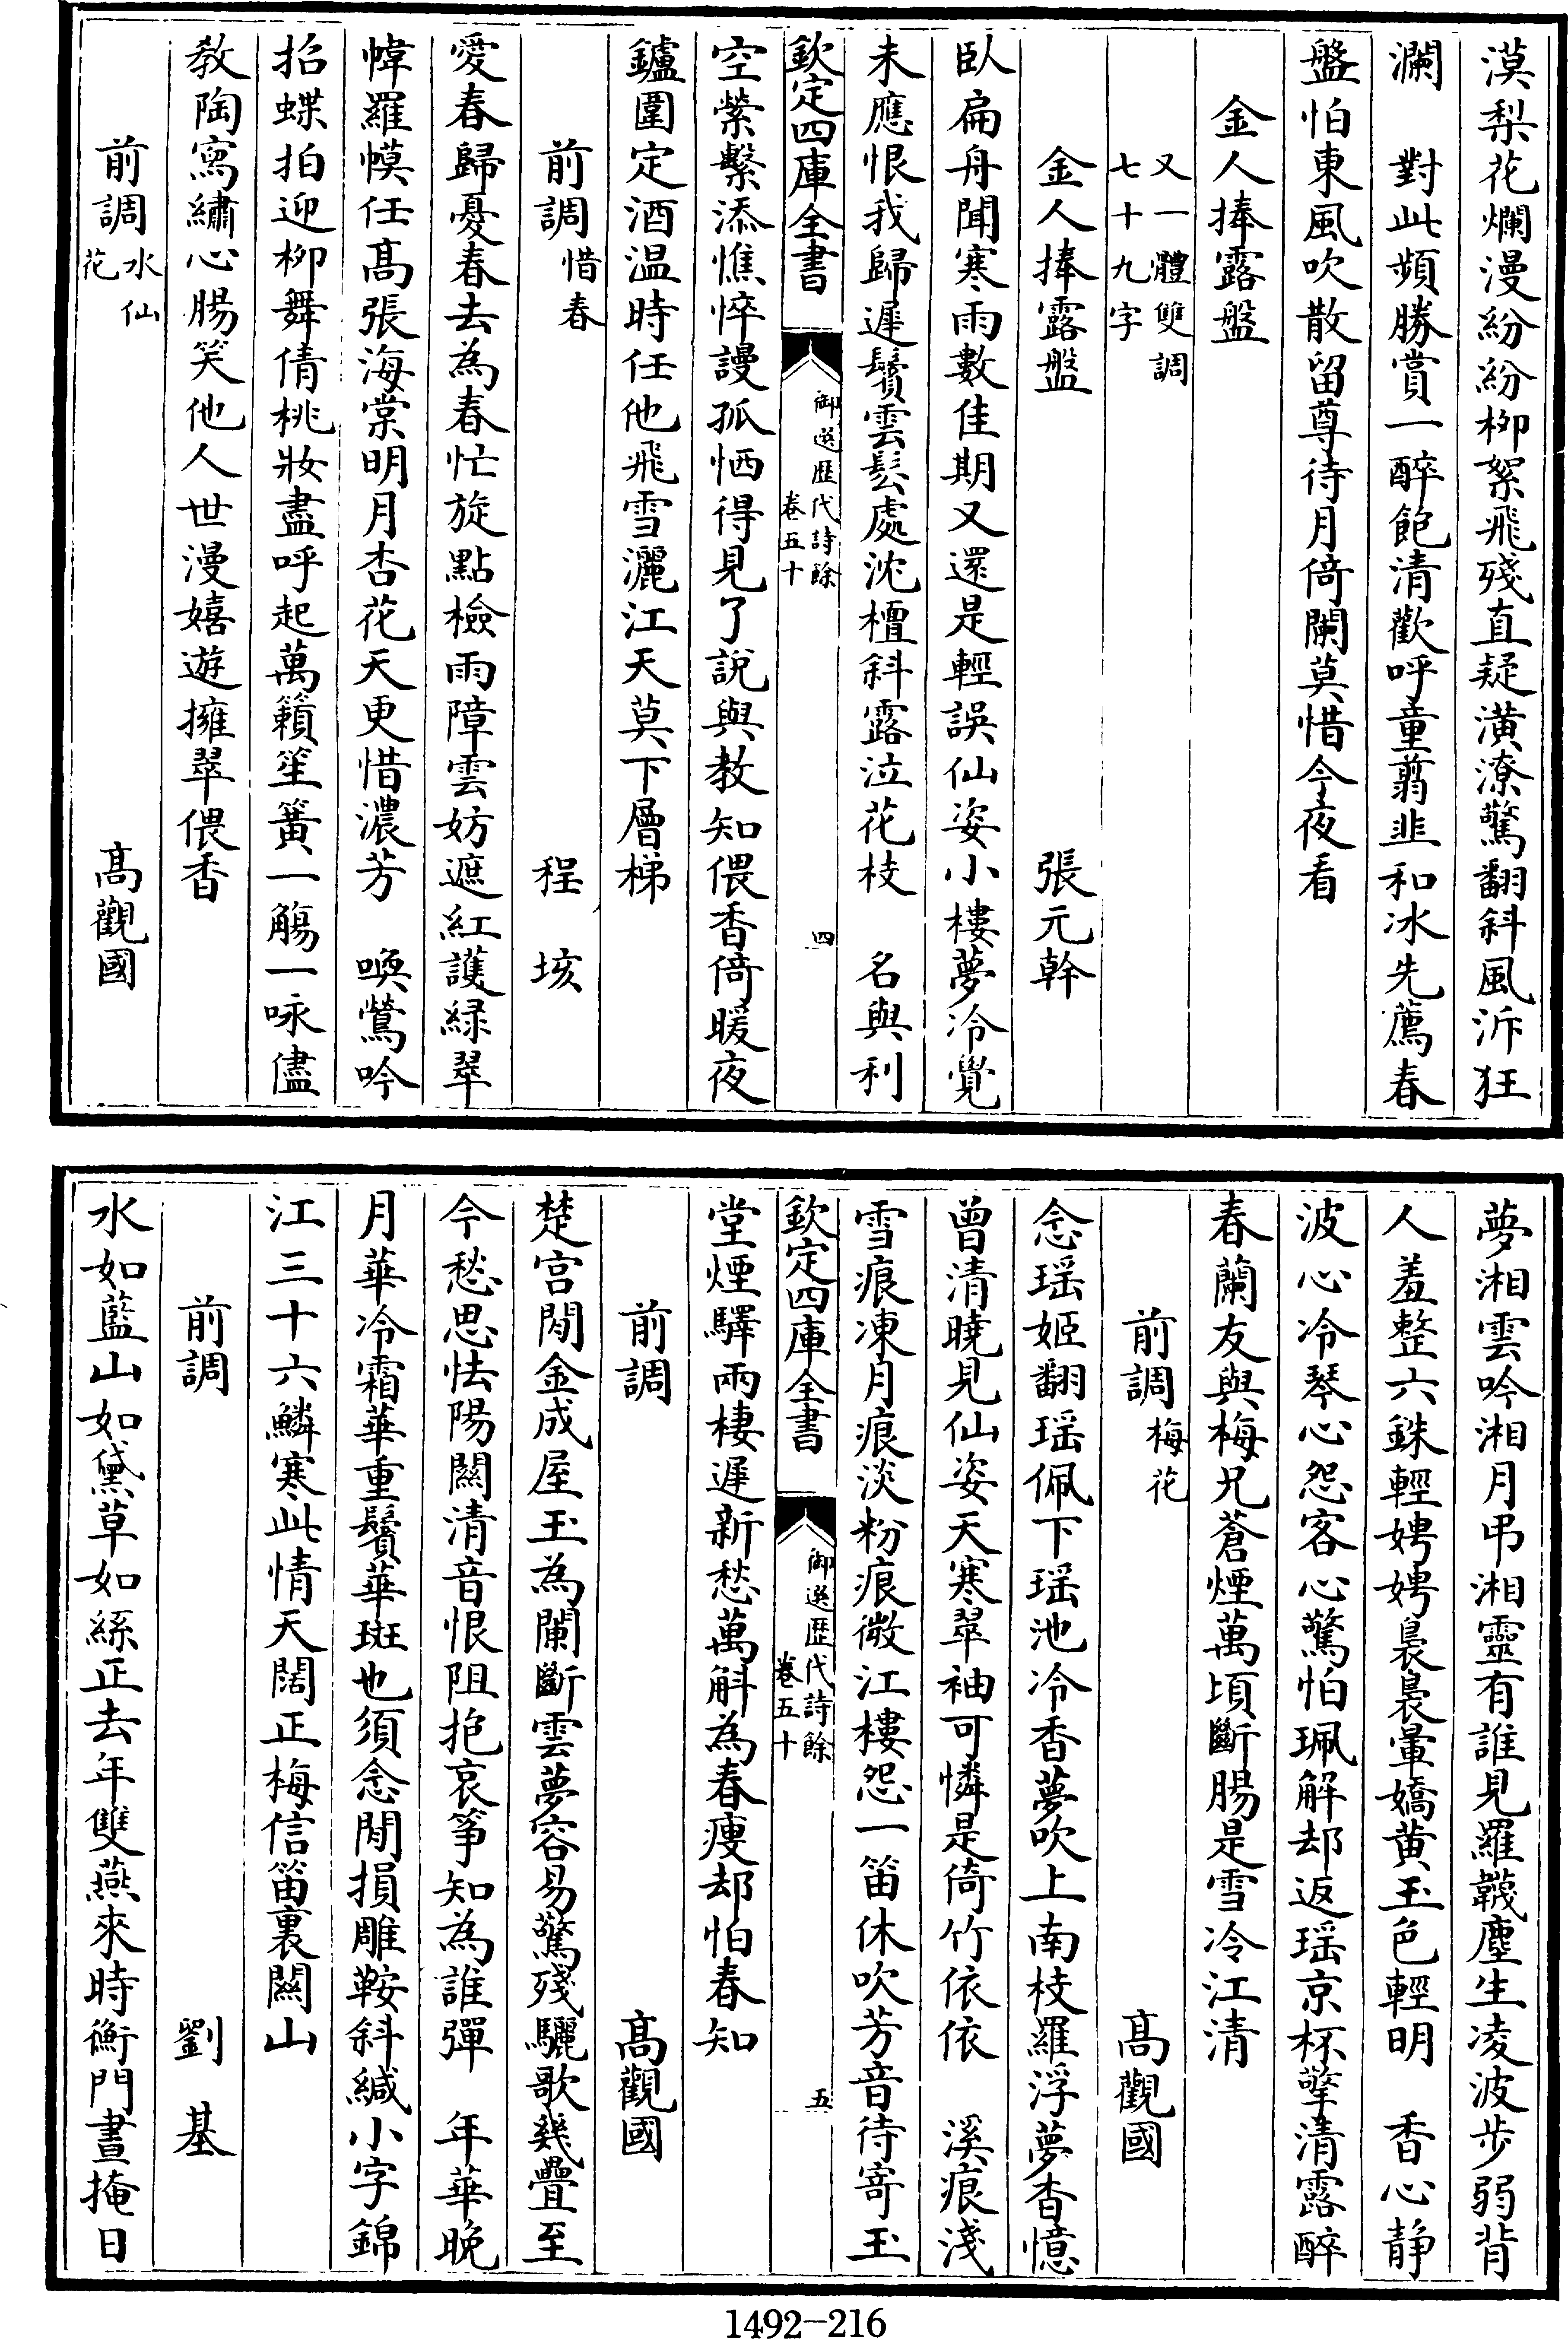 漠梨花爛漫紛紛柳絮飛殘直疑潢潦驚翻斜風泝狂
瀾　對此頻勝賞一醉飽清歡呼童翦韭和冰先薦春
盤怕東風吹散留尊待月倚闌莫惜今夜看
金人捧露盤
又一體雙調
七十九字
金人捧露盤　張元幹
臥扁舟聞寒雨數佳期又還是輕誤仙姿小樓夢冷覺
未應恨我歸遲鬢雲鬆處沈檀斜露泣花枝　名與利
欽定四庫全書
御選歷代詩餘
卷五十
四
空縈繫添憔悴謾孤恓得見了說與教知偎香倚暖夜
鑪圍定酒温時任他飛雪灑江天莫下層梯
前調惜春　程垓
愛春歸憂春去為春忙旋點檢雨障雲妨遮紅護緑翠
幃羅幙任髙張海棠明月杏花天更惜濃芳　喚鶯吟
招蝶拍迎柳舞倩桃妝盡呼起萬籟笙簧一觴一咏儘
教陶寫繡心腸笑他人世漫嬉遊擁翠偎香
前調水仙花　髙觀國
夢湘雲吟湘月弔湘靈有誰見羅韈塵生凌波步弱背
人羞整六銖輕娉娉裊裊暈嬌黄玉色輕明　香心静
波心冷琴心怨客心驚怕珮解却返瑶京杯擎清露醉
春蘭友與梅兄蒼煙萬頃斷腸是雪冷江清
前調梅花　髙觀國
念瑶姬翻瑶佩下瑶池冷香夢吹上南枝羅浮夢杳憶
曾清曉見仙姿天寒翠袖可憐是倚竹依依　溪痕淺
雪痕凍月痕淡粉痕微江樓怨一笛休吹芳音待寄玉
欽定四庫全書
御選歷代詩餘
卷五十
五
堂煙驛兩棲遲新愁萬斛為春痩却怕春知
前調　髙觀國
楚宫閒金成屋玉為闌斷雲夢容易驚殘驪歌幾疊至
今愁思怯陽關清音恨阻抱哀筝知為誰彈　年華晚
月華冷霜華重鬢華斑也須念閒損雕鞍斜緘小字錦
江三十六鱗寒此情天闊正梅信笛裏關山
前調　劉基
水如藍山如黛草如絲正去年雙燕來時衡門晝掩日
1492—216